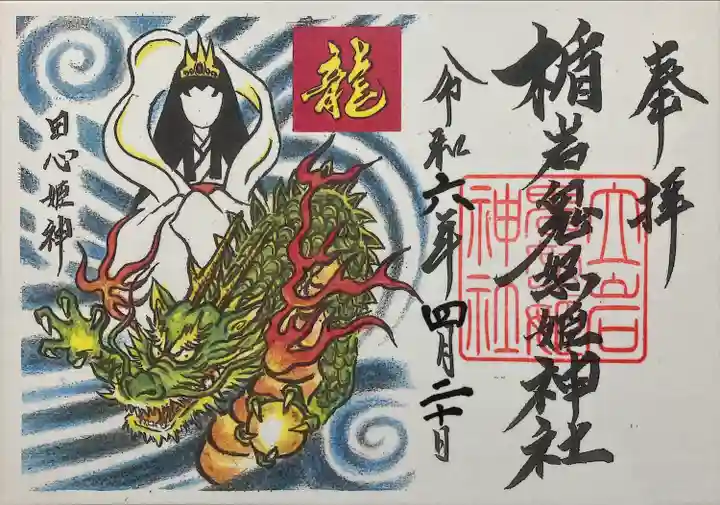 奉拝
楯岩鬼怒姫神社
令和六年四月二十日
龍
田心姫神
立岩
鬼怒姫
神社